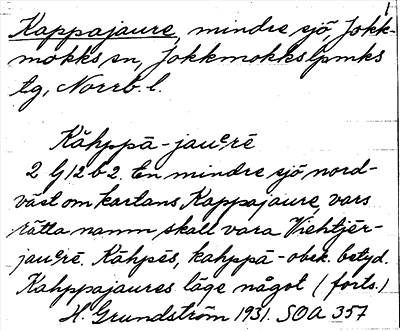 1
Kappajaure, mindre sjö, Jokk-
mokks sn, Jokkmokks lpmks
tg, Norrb. l.
Kåhppā-jauᵉrē
2 G/2 b 2. En mindre sjö nord-
väst om kartans Kappajaure, vars
rätta namn skall vara Viehtjēr-
jauᵉrē. Kåhpēs, kahppā- obek. betyd.
Kahppajaures läge något (forts.)
H. Grundström 1931. SOA 357